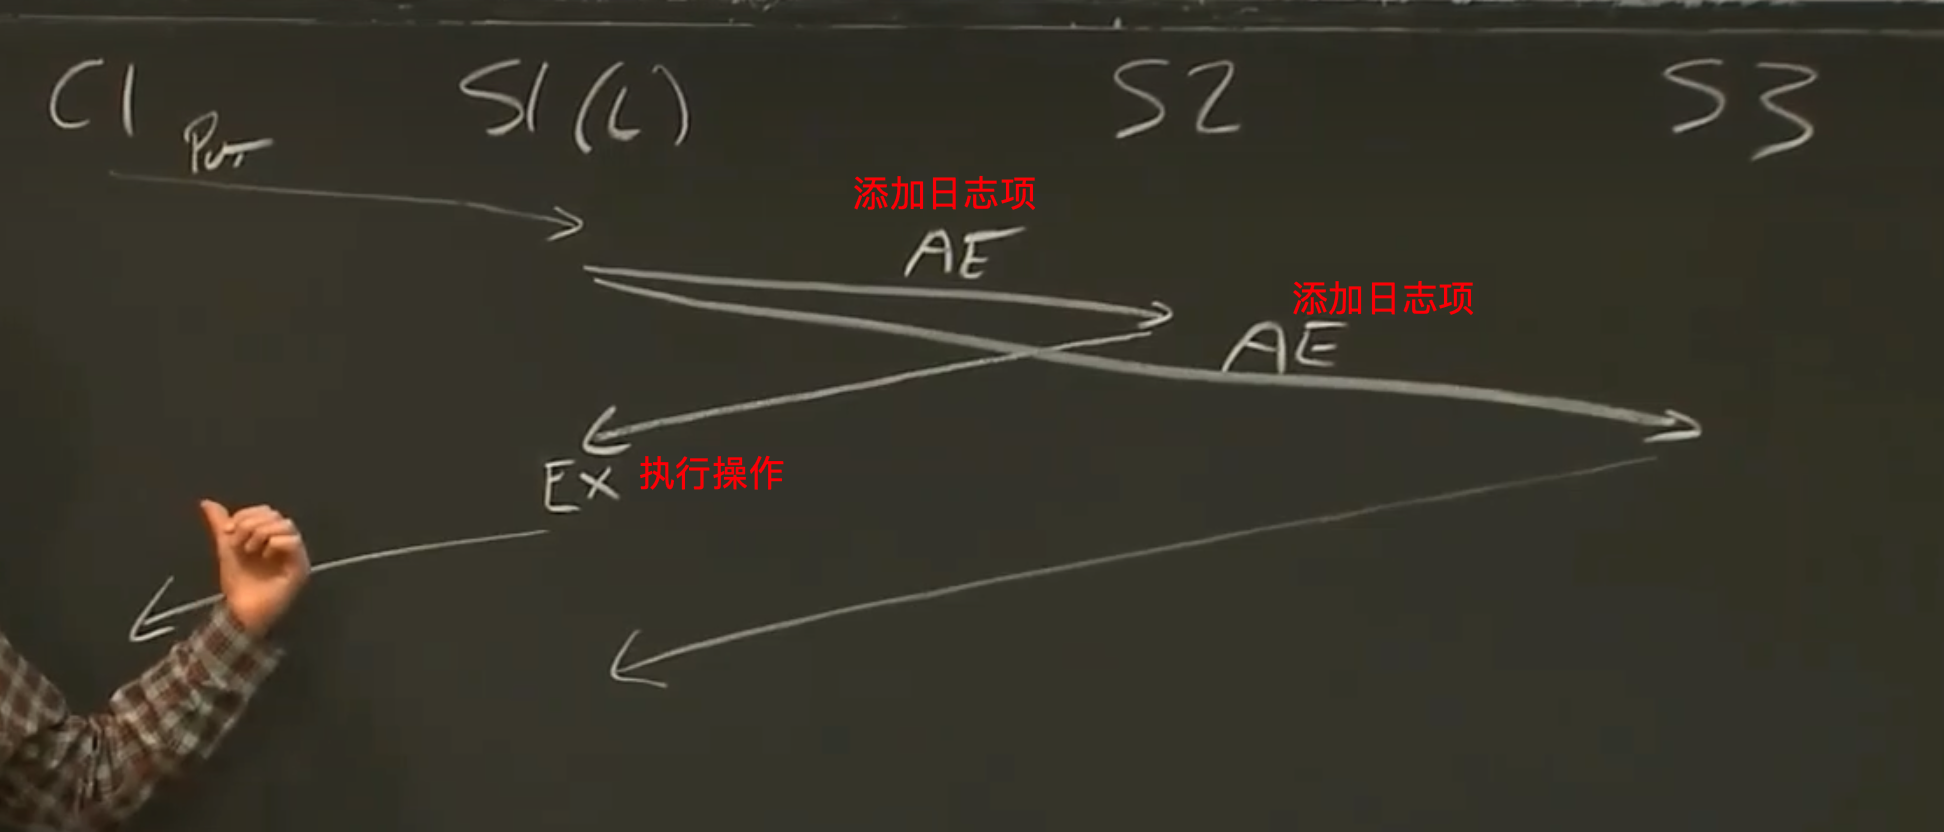 C1 S1(L) S2 S3
Put
添加日志项
AE
添加日志项
AE
EX 执行操作